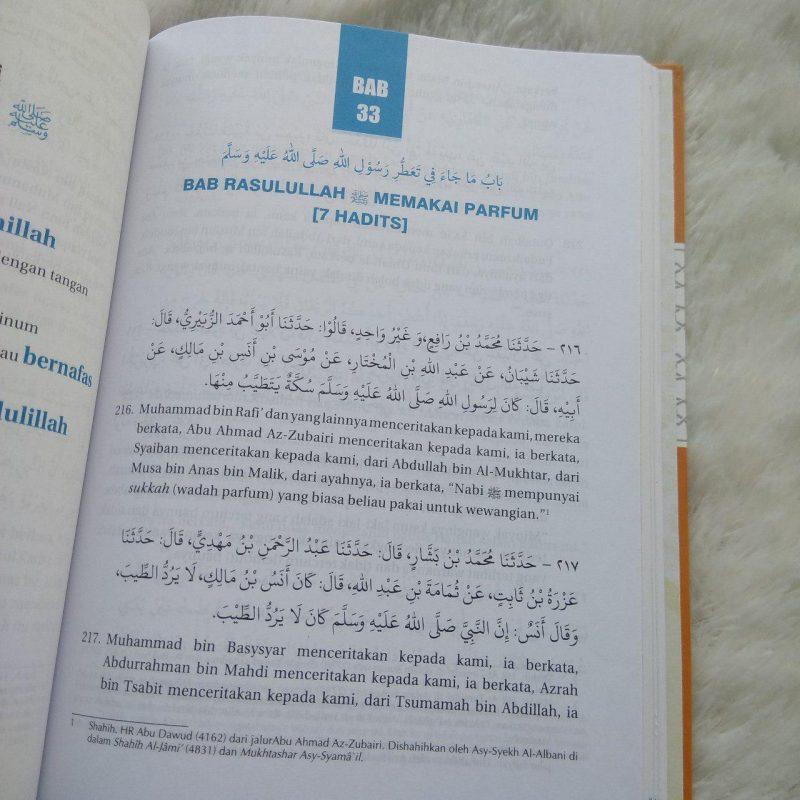 ﷺ
illah
engan tangan
inum
au bernafas
dulillah
BAB
33
بَابُ مَا جَاءَ فِي تَعَطُّرِ رَسُوْلِ اللهِ صَلَّى اللهُ عَلَيْهِ وَسَلَّمَ
BAB RASULULLAH ﷺ MEMAKAI PARFUM
[7 HADITS]
٢١٦ - حَدَّثَنَا مُحَمَّدُ بْنُ رَافِعٍ، وَ غَيْرُ وَاحِدٍ، قَالُوْا: حَدَّثَنَا أَبُوْ أَحْمَدَ الزُّبَيْرِيُّ، قَالَ:
حَدَّثَنَا شَيْبَانُ، عَنْ عَبْدِ اللهِ بْنِ الْمُخْتَارِ، عَنْ مُوْسَى بْنِ أَنَسِ بْنِ مَالِكٍ، عَنْ
أَبِيْهِ، قَالَ: كَانَ لِرَسُولِ اللهِ صَلَّى اللهُ عَلَيْهِ وَسَلَّمَ سُكَّةٌ يَتَطَيَّبُ مِنْهَا.
216. Muhammad bin Rafi' dan yang lainnya menceritakan kepada kami, mereka
berkata, Abu Ahmad Az-Zubairi menceritakan kepada kami, ia berkata,
Syaiban menceritakan kepada kami, dari Abdullah bin Al-Mukhtar, dari
Musa bin Anas bin Malik, dari ayahnya, ia berkata, “Nabi ﷺ mempunyai
sukkah (wadah parfum) yang biasa beliau pakai untuk wewangian.”¹
٢١٧ - حَدَّثَنَا مُحَمَّدُ بْنُ بَشَّارٍ، قَالَ: حَدَّثَنَا عَبْدُ الرَّحْمَنِ بْنُ مَهْدِيٍّ، قَالَ: حَدَّثَنَا
عَزْرَةُ بْنُ ثَابِتٍ، عَنْ ثُمَامَةَ بْنِ عَبْدِ اللهِ، قَالَ: كَانَ أَنَسُ بْنُ مَالِكٍ، لَا يَرُدُّ الطِّيبَ،
وَقَالَ أَنَسٌ: إِنَّ النَّبِيَّ صَلَّى اللهُ عَلَيْهِ وَسَلَّمَ كَانَ لَا يَرُدُّ الطِّيْبَ.
217. Muhammad bin Basysyar menceritakan kepada kami, ia berkata,
Abdurrahman bin Mahdi menceritakan kepada kami, ia berkata, Azrah
bin Tsabit menceritakan kepada kami, dari Tsumamah bin Abdillah, ia
1 Shahih. HR Abu Dawud (4162) dari jalurAbu Ahmad Az-Zubairi. Dishahihkan oleh Asy-Syekh Al-Albani di
dalam Shahîh Al-Jâmi' (4831) dan Mukhtashar Asy-Syamâ`il.